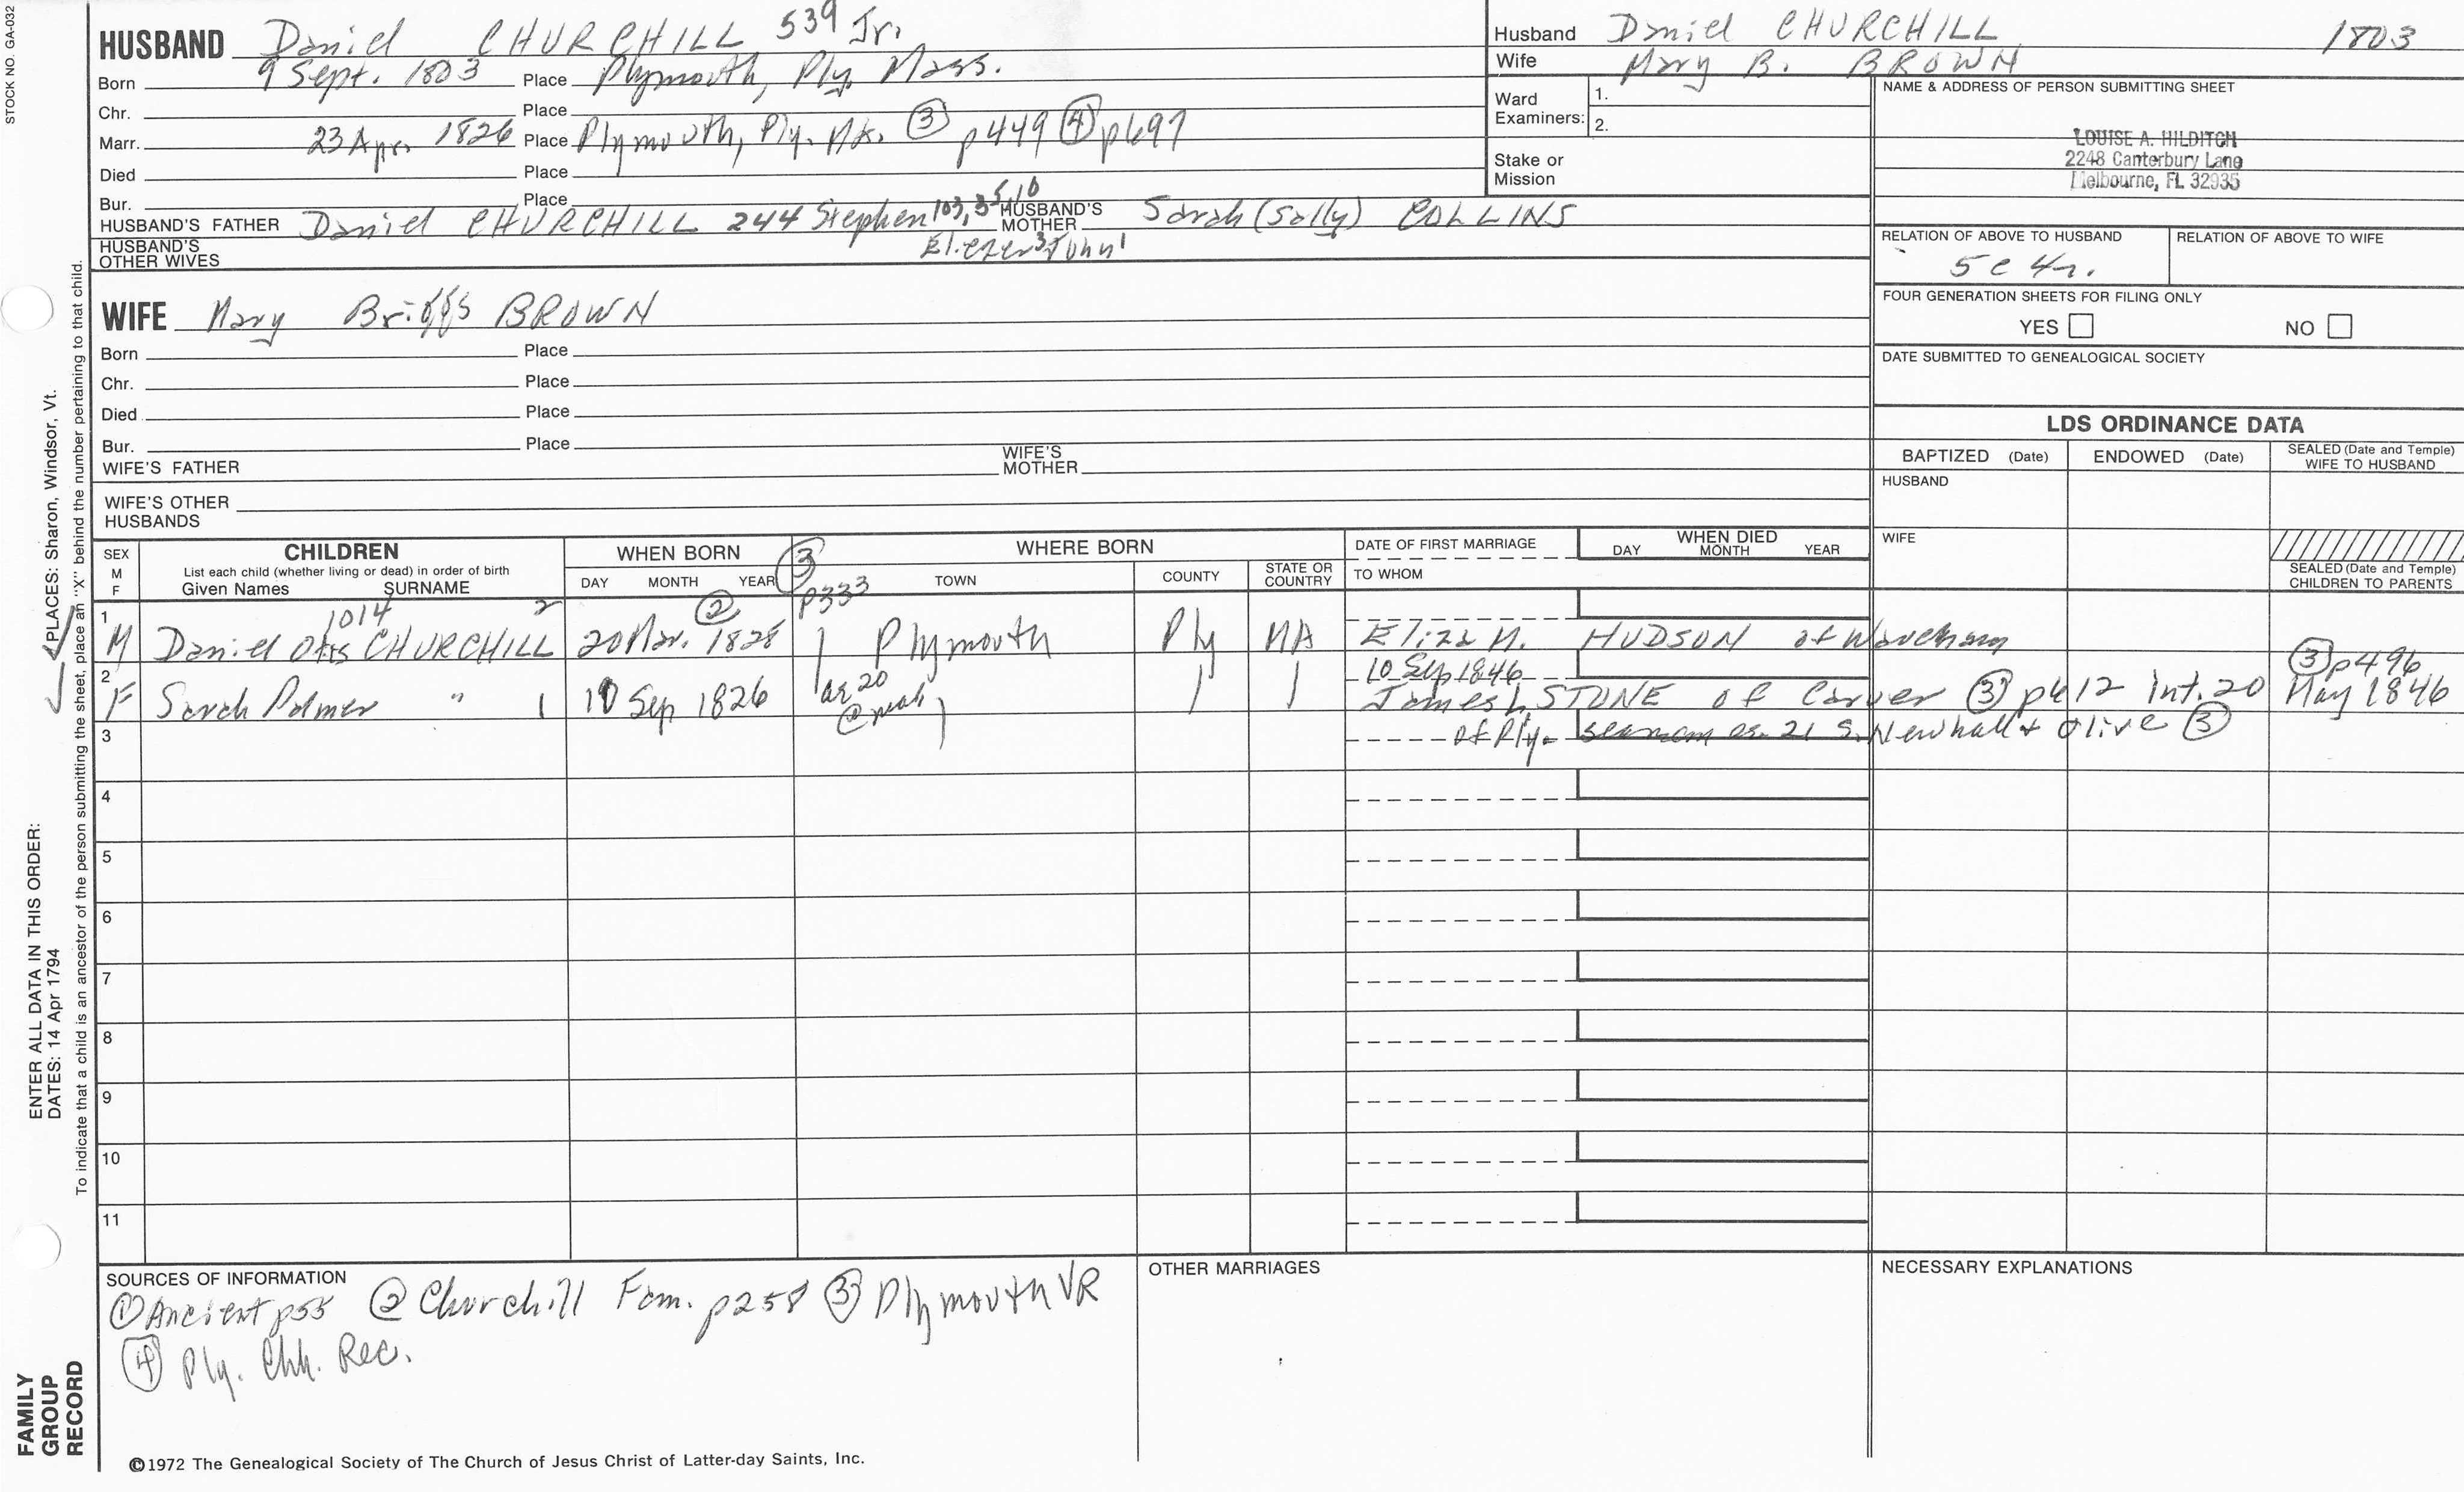 STOCK NO. GA-032
HUSBAND Daniel CHURCHILL 539 Jr.
Born 9 Sept. 1803 Place Plymouth, Ply Mass.
Chr. Place
Marr. 23 Apr. 1826 Place Plymouth, Ply. MA. ③ p449 ④ p697
Died Place
Bur. Place
HUSBAND'S FATHER Daniel CHURCHILL 244 Stephen 103, HUSBAND'S MOTHER Sarah (Sally) COLLINS
HUSBAND'S OTHER WIVES Eliezer John
Husband Daniel CHURCHILL 1803
Wife Mary B. BROWN
Ward Examiners: 1.
2.
Stake or Mission
NAME & ADDRESS OF PERSON SUBMITTING SHEET
LOUISE A. HILDITCH
2248 Canterbury Lane
Melbourne, FL 32935
RELATION OF ABOVE TO HUSBAND RELATION OF ABOVE TO WIFE
5c 4r.
FOUR GENERATION SHEETS FOR FILING ONLY
YES NO
DATE SUBMITTED TO GENEALOGICAL SOCIETY
WIFE Mary Briggs BROWN
Born Place
Chr. Place
Died Place
Bur. Place
WIFE'S FATHER WIFE'S MOTHER
WIFE'S OTHER HUSBANDS
LDS ORDINANCE DATA
BAPTIZED (Date) ENDOWED (Date) SEALED (Date and Temple) WIFE TO HUSBAND
HUSBAND
WIFE
SEALED (Date and Temple) CHILDREN TO PARENTS
SEX M F
CHILDREN
List each child (whether living or dead) in order of birth
Given Names SURNAME
WHEN BORN
DAY MONTH YEAR
③ p333
WHERE BORN
TOWN COUNTY STATE OR COUNTRY
DATE OF FIRST MARRIAGE
TO WHOM
WHEN DIED
DAY MONTH YEAR
1 M Daniel Otis CHURCHILL 1014 2 20 Mar. 1828 ② Plymouth Ply MA Eliza M. HUDSON of Wareham
2 F Sarah Palmer " 1 10 Sep 1826 ae 20 10 Sep 1846 James L STONE of Carver ③ p612 Int. 20 May 1846 ③ p496
3 of Ply. seaman ae. 21 S. Newhall & Olive ③
4
5
6
7
8
9
10
11
SOURCES OF INFORMATION
① Ancient p55 ② Churchill Fam. p258 ③ Plymouth VR
④ Ply. Chh. Rec.
OTHER MARRIAGES
NECESSARY EXPLANATIONS
©1972 The Genealogical Society of The Church of Jesus Christ of Latter-day Saints, Inc.
FAMILY GROUP RECORD
ENTER ALL DATA IN THIS ORDER:
DATES: 14 Apr 1794
PLACES: Sharon, Windsor, Vt.
To indicate that a child is an ancestor of the person submitting the sheet, place an "X" behind the number pertaining to that child.